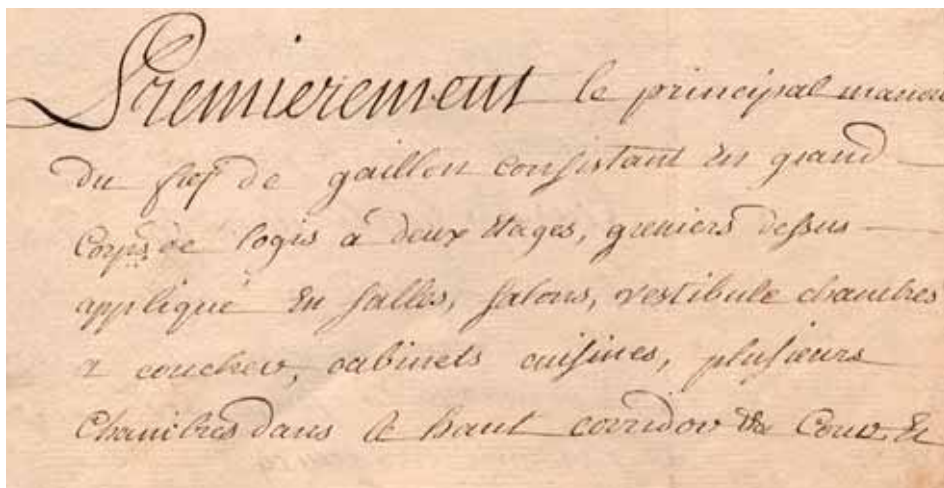 Premierement le principal manou
du fief de gaillon consistant en grand
Corps de logis a deux etages, greniers dessus
appliqué en salles, salons, vestibule chambres
a coucher, cabinets cuisines, plusieurs
Chambres dans le haut corridor Cour, et